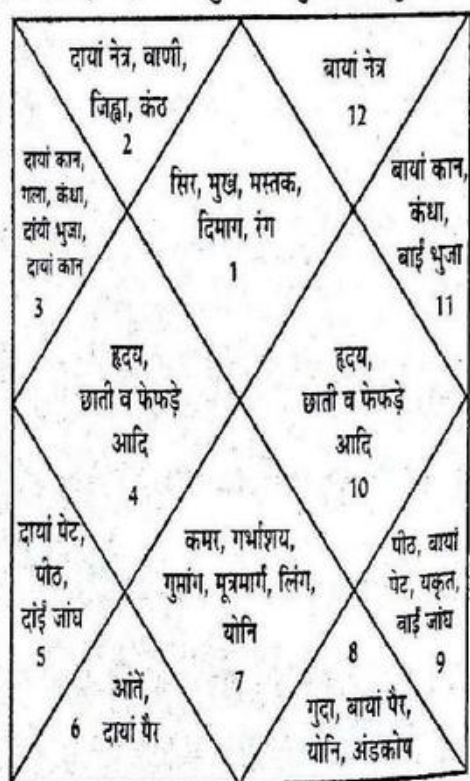 दायां नेत्र, वाणी,
जिह्वा, कंठ
2
बायां नेत्र
12
दायां कान,
गला, कंधा,
दांयी भुजा,
दायां कान
3
सिर, मुख, मस्तक,
दिमाग, रंग
1
बायां कान,
कंधा,
बाईं भुजा
11
हृदय,
छाती व फेफड़े
आदि
4
हृदय,
छाती व फेफड़े
आदि
10
दायां पेट,
पीठ,
दांईं जांघ
5
कमर, गर्भाशय,
गुमांग, मूत्रमार्ग, लिंग,
योनि
7
पीठ, बायां
पेट, यकृत,
बाईं जांघ
9
आंतें,
दायां पैर
6
8
गुदा, बायां पैर,
योनि, अंडकोष